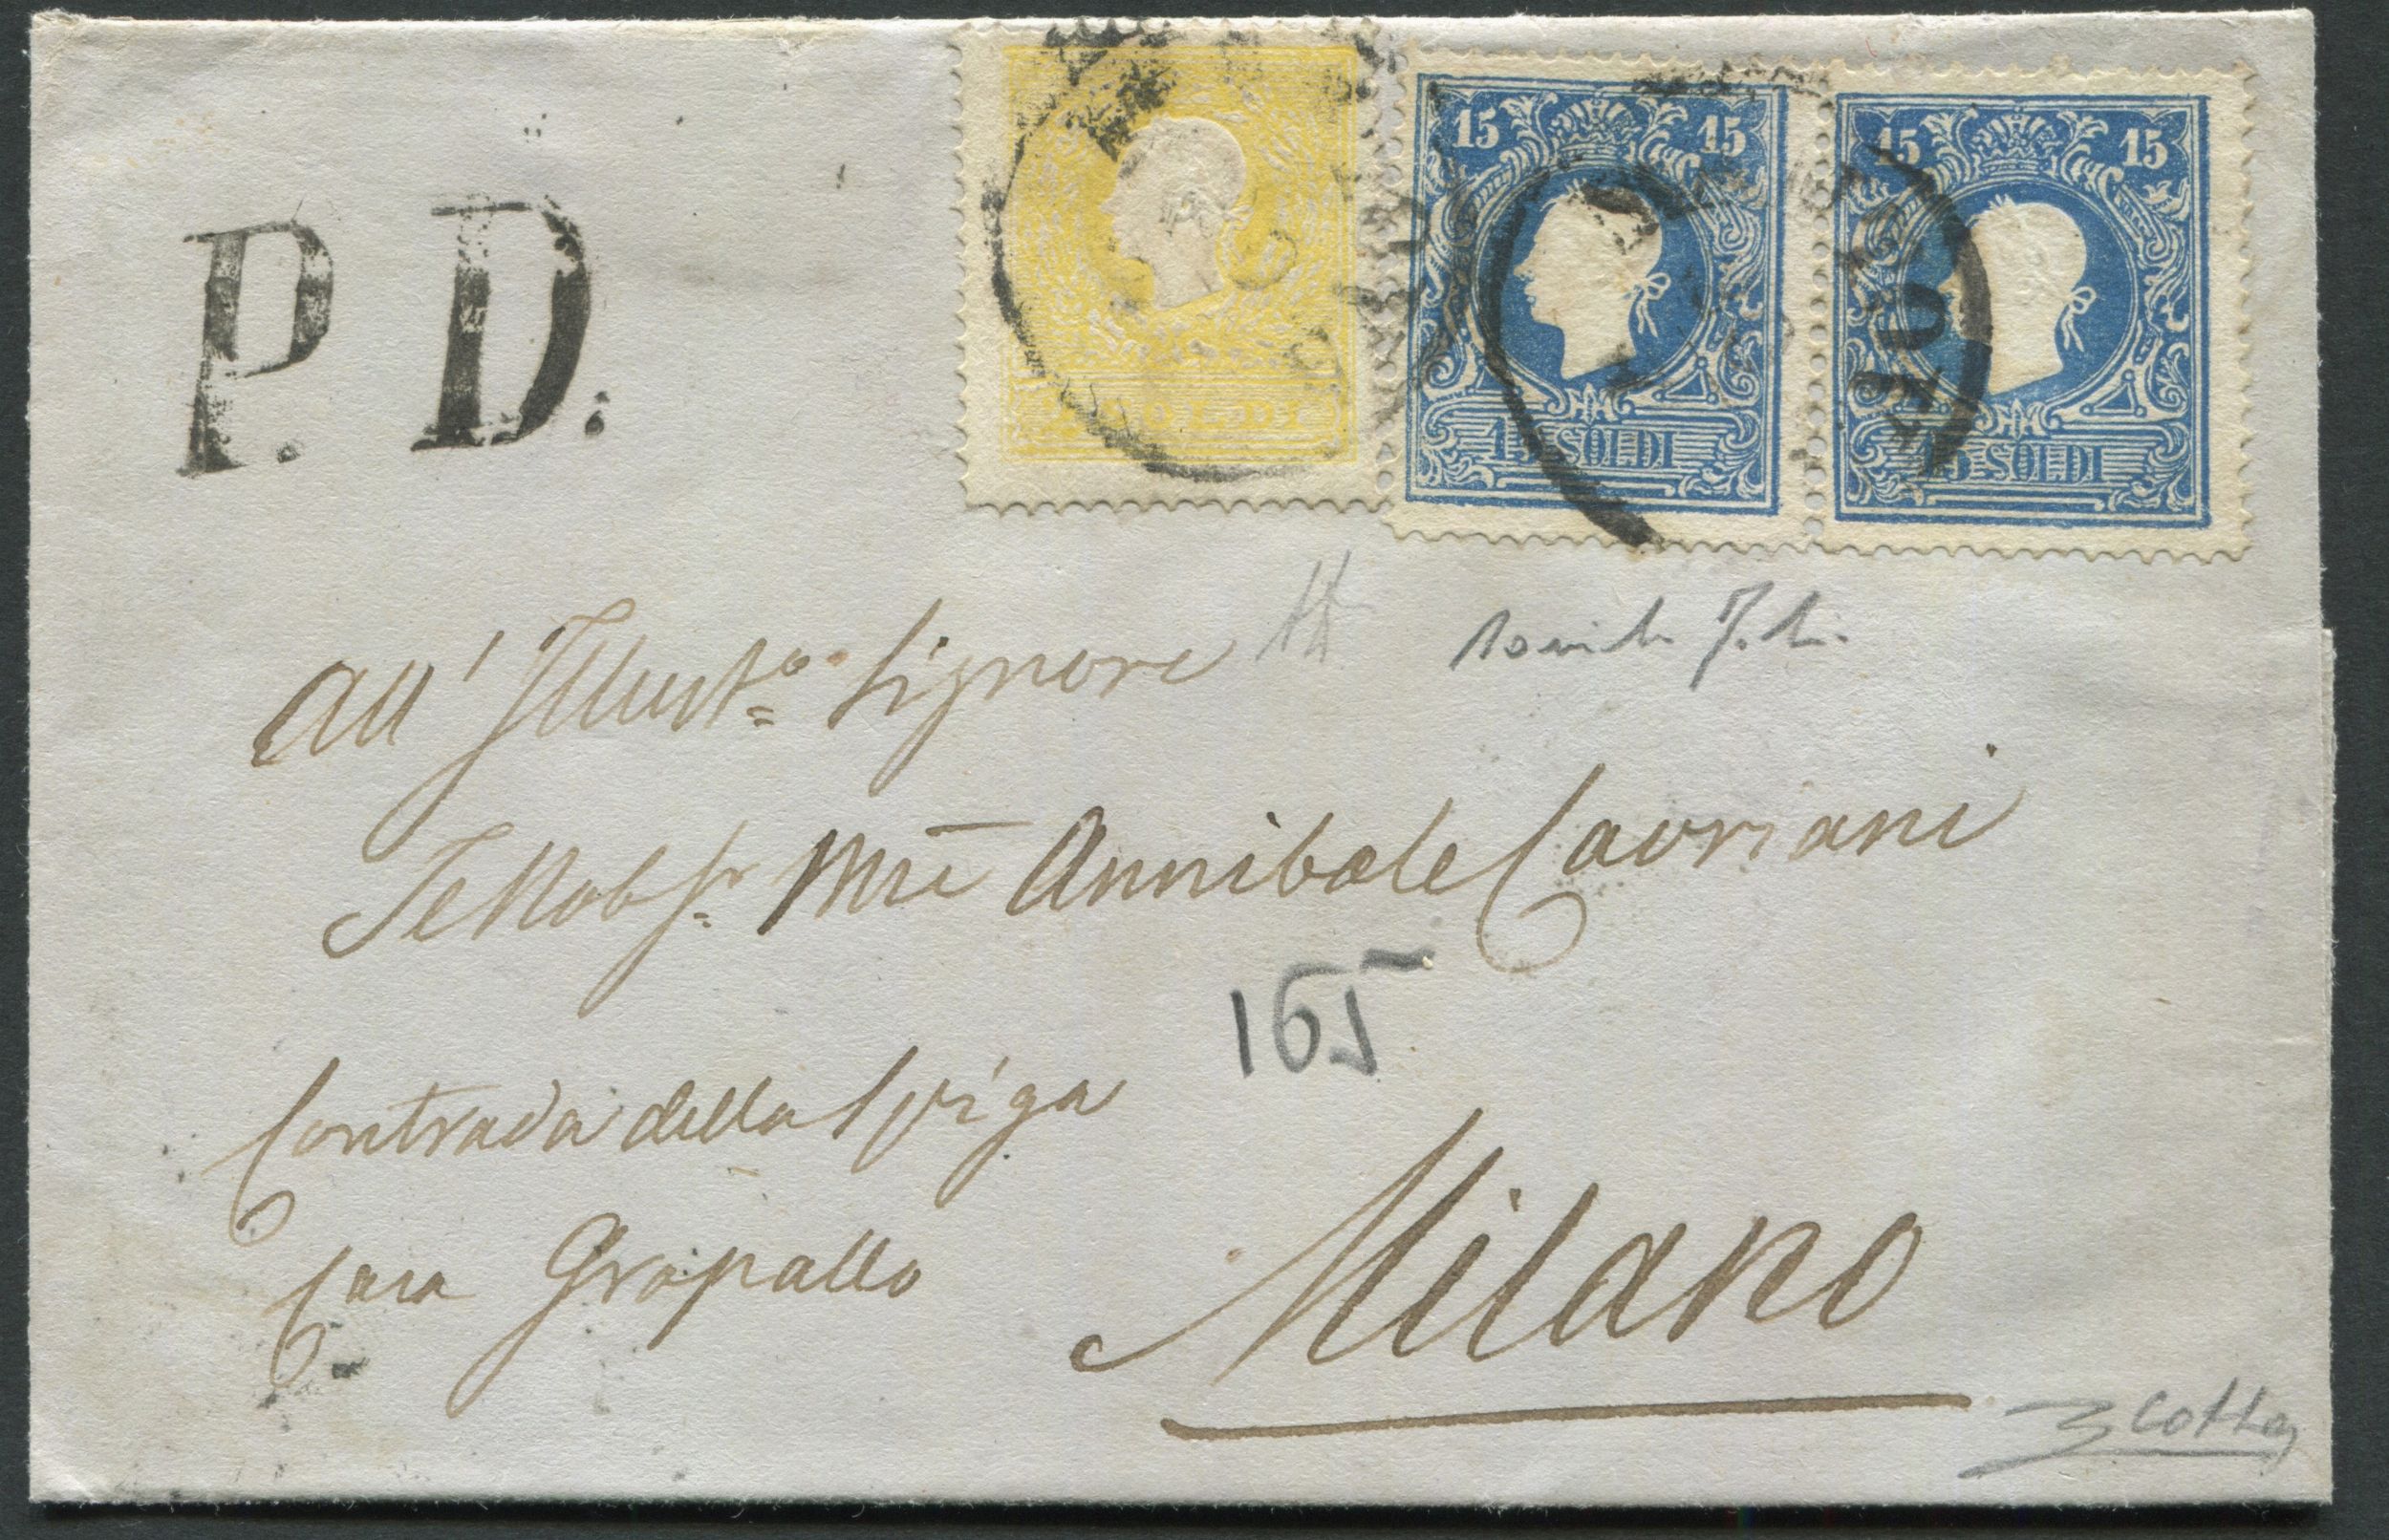 P. D.
SOLDI
15 15
15 SOLDI
15 15
15 SOLDI
All' Illustº Signore
Nob Mse Annibale Cavriani
165
Contrada della Spiga
Casa Gropallo
Milano